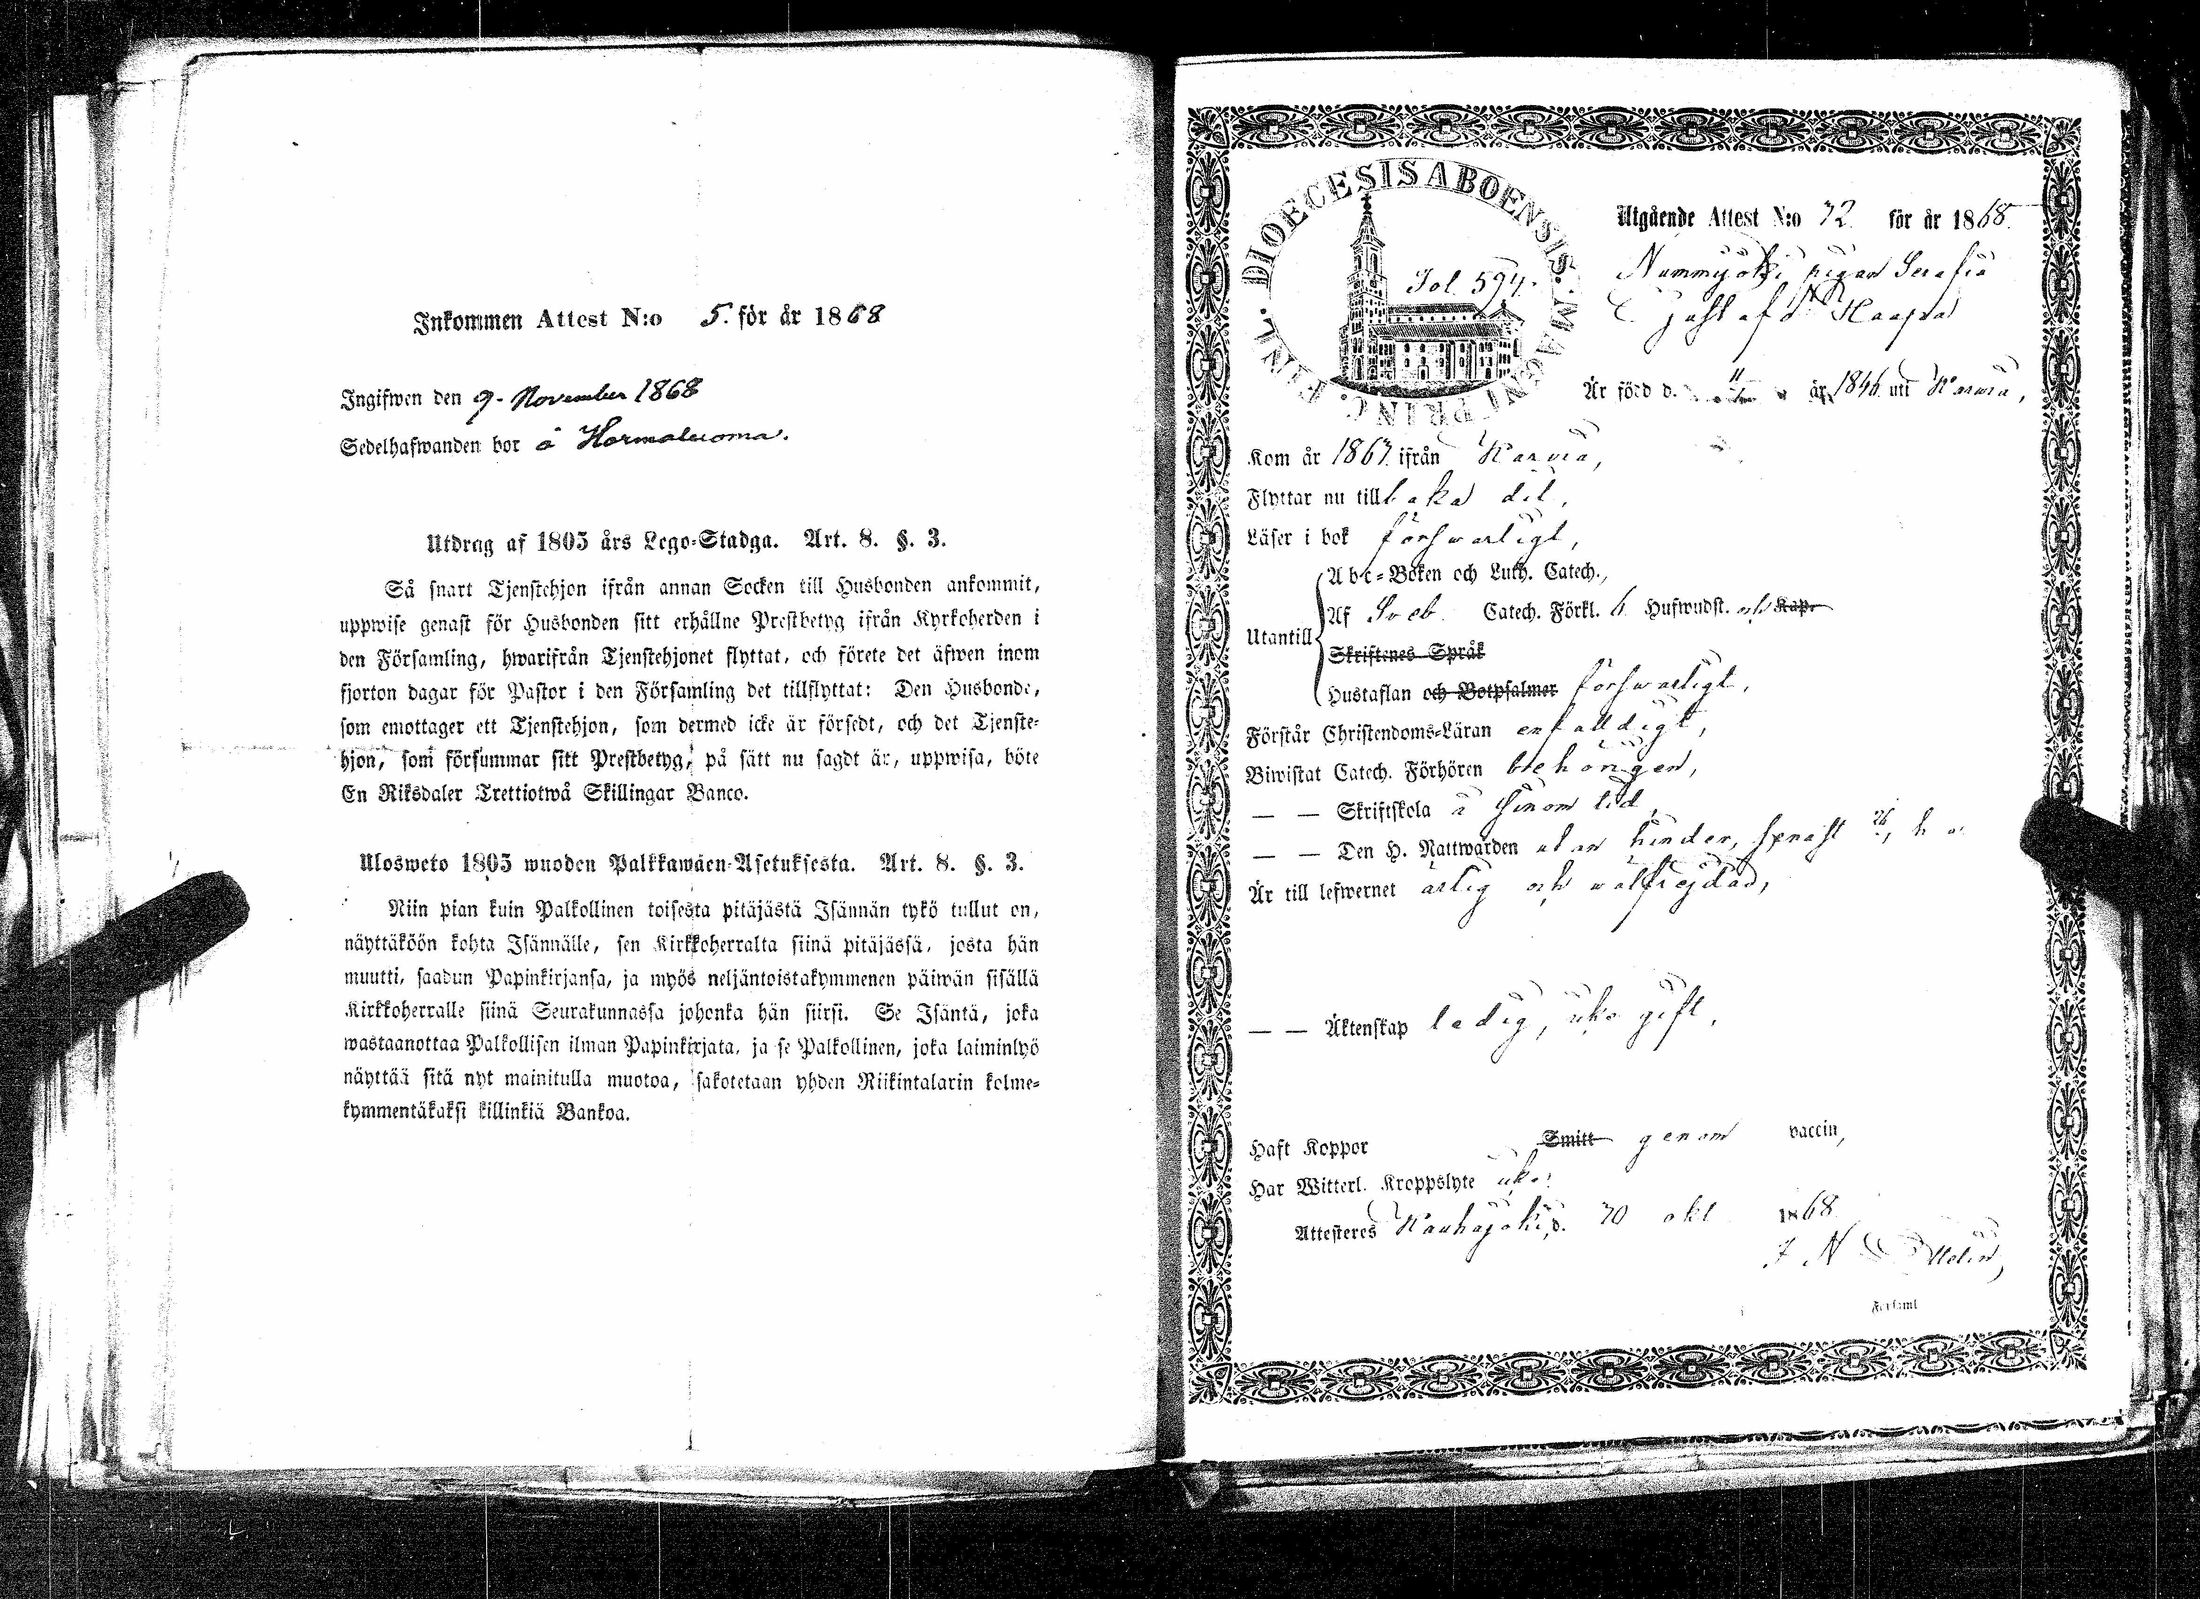 Inkommen Attest N:o 5. för år 1868
Ingifwen den 9. November 1868
Sedelhafwanden bor å Hormaluoma.
Utdrag af 1805 års Lego-Stadga. Art. 8. §. 3.
Så snart Tjenstehjon ifrån annan Socken till Husbonden ankommit,
uppwise genast för Husbonden sitt erhållne Prestbetyg ifrån Kyrkoherden i
den Församling, hwarifrån Tjenstehjonet flyttat, och förete det äfwen inom
fjorton dagar för Pastor i den Församling det tillflyttat: Den Husbonde,
som emottager ett Tjenstehjon, som dermed icke är försedt, och det Tjenste-
hjon, som försummar sitt Prestbetyg, på sätt nu sagdt är, uppwisa, böte
En Riksdaler Trettiotwå Skillingar Banco.
Ulosweto 1805 wuoden Palkkawäen-Asetuksesta. Art. 8. §. 3.
Niin pian kuin Palkollinen toisesta pitäjästä Isännän tykö tullut on,
näyttäköön kohta Isännälle, sen Kirkkoherralta siinä pitäjässä, josta hän
muutti, saadun Papinkirjansa, ja myös neljäntoistakymmenen päiwän sisällä
Kirkkoherralle siinä Seurakunnassa johonka hän siirsi. Se Isäntä, joka
wastaanottaa Palkollisen ilman Papinkirjata, ja se Palkollinen, joka laiminlyö
näyttää sitä nyt mainitulla muotoa, sakotetaan yhden Riikintalarin kolme-
kymmentäkaksi killinkiä Bankoa.
DIOECESIS ABOENSIS. MAGNI PRINC. FINL.
Fol. 594.
Utgående Attest N:o 72. för år 1868.
Nummijoki pigan Serafia
Gustafsd Haapa
Är född d. 11 år 1846 uti Karvia,
Kom år 1867 ifrån Karvia,
Flyttar nu tillbaka dit,
Läser i bok förswarligt,
Abc-Boken och Luth. Catech.,
Utantill Af Sveb. Catech. Förkl. 6 Hufwudst. och Kap.
Skriftenes Språk
Hustaflan och Botpsalmer förswarligt,
Förstår Christendoms-Läran enfaldigt,
Biwistat Catech. Förhören behörigen,
— — Skriftskola i sinom tid,
— — Den H. Nattwarden utan hinder, senast
Är till lefwernet ärlig och wälfrejdad,
— — Äktenskap ledig, icke gift,
Haft Koppor Smitt genom vaccin,
Har Witterl. Kroppslyte icke.
Attesteres Kauhajoki, d. 70 okt 1868
Församl